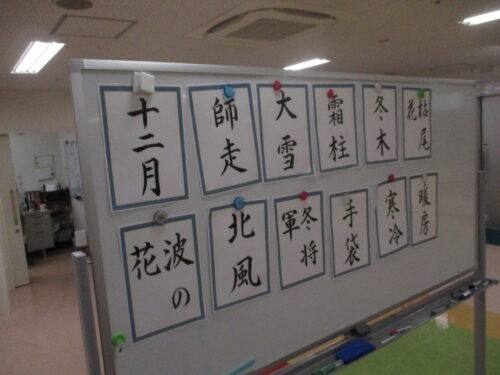 十二月
師走
大雪
霜柱
冬木
枯尾
花
波の
花
北風
冬将
軍
手袋
寒冷
暖房